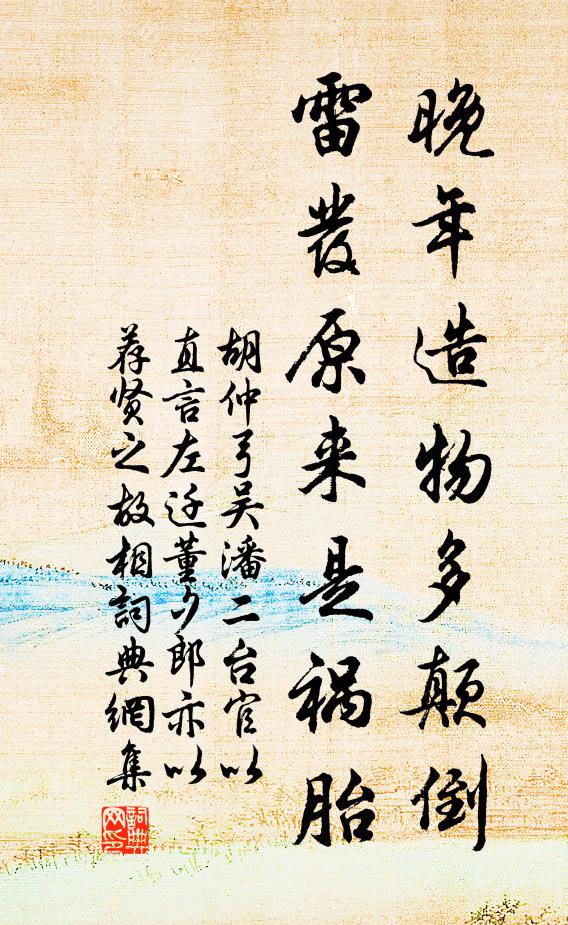 晚年造物多颠倒
雷發原来是祸胎
胡仲弓吴潘二台官以
直言左迁董夕郎亦以
荐贤之故相詞典網集
詞典网印